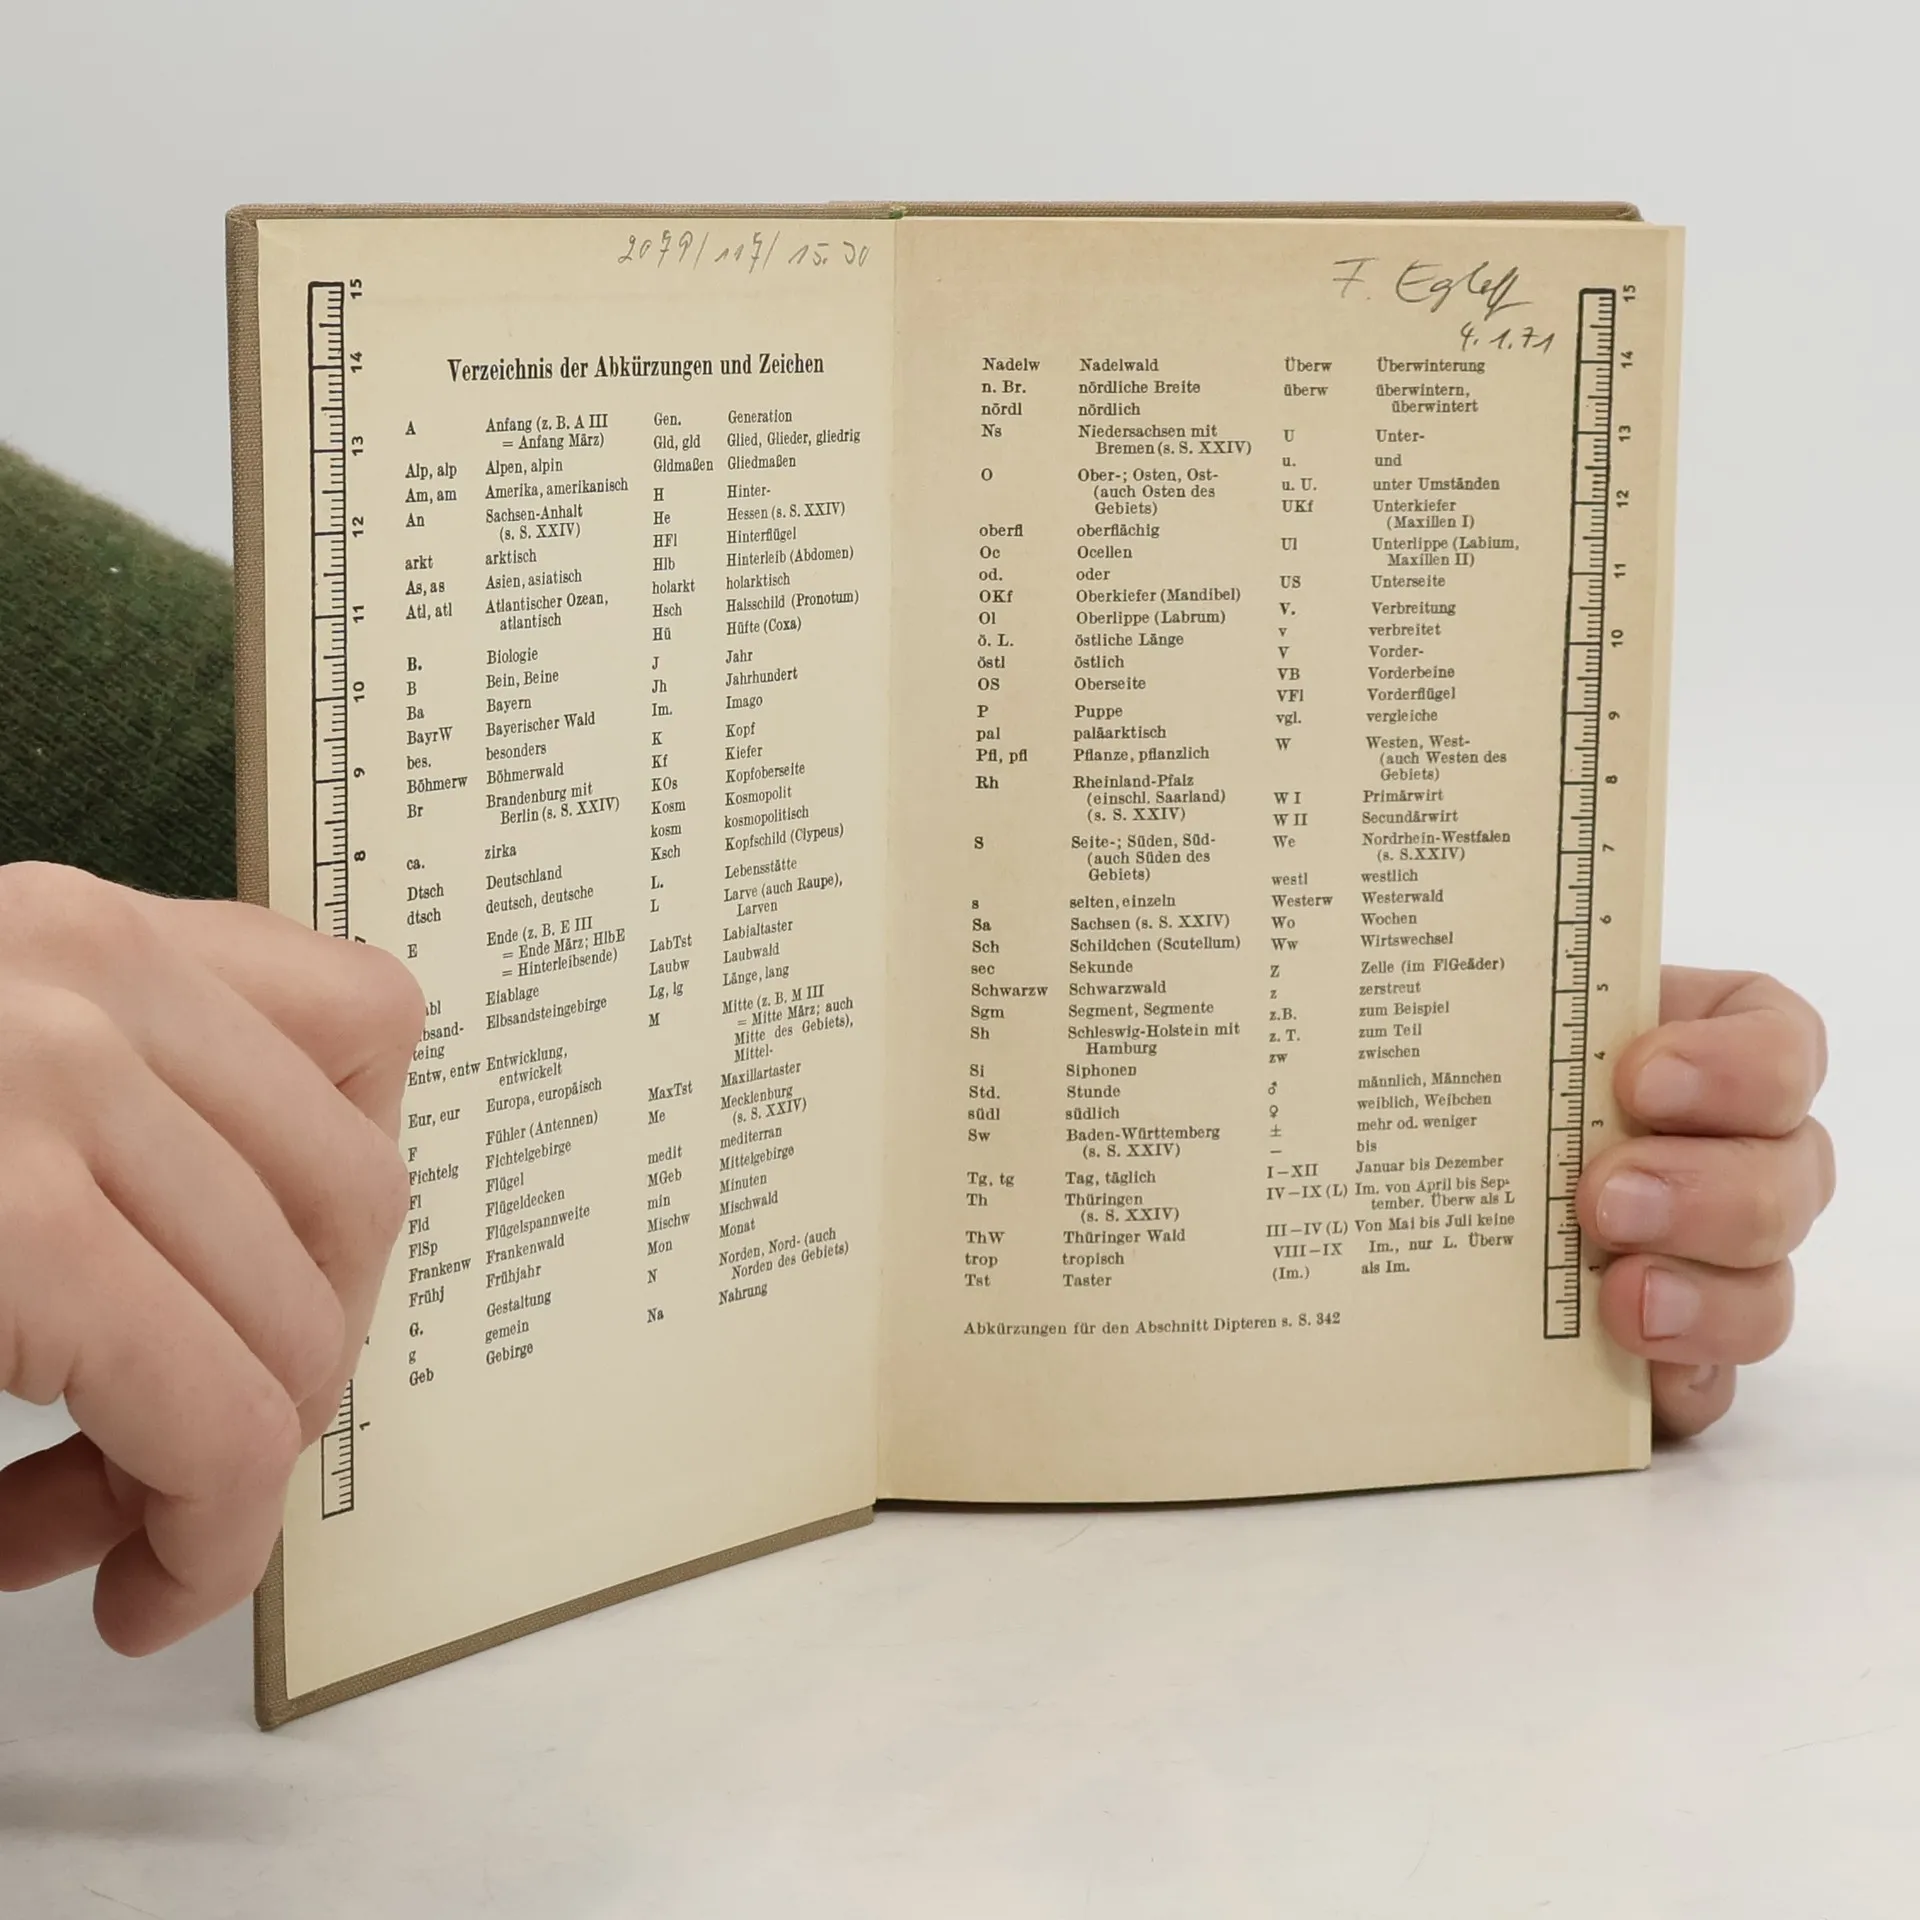 2079/117/ 15.30
Verzeichnis der Abkürzungen und Zeichen
A Anfang (z. B. A III
= Anfang März)
Alp, alp Alpen, alpin
Am, am Amerika, amerikanisch
An Sachsen-Anhalt
(s. S. XXIV)
arkt arktisch
As, as Asien, asiatisch
Atl, atl Atlantischer Ozean,
atlantisch
B. Biologie
B Bein, Beine
Ba Bayern
BayrW Bayerischer Wald
bes. besonders
Böhmerw Böhmerwald
Br Brandenburg mit
Berlin (s. S. XXIV)
ca. zirka
Dtsch Deutschland
dtsch deutsch, deutsche
E Ende (z. B. E III
= Ende März; HlbE
= Hinterleibsende)
abl Eiablage
bsand- Elbsandsteingebirge
teing
Entw, entw Entwicklung,
entwickelt
Eur, eur Europa, europäisch
F Fühler (Antennen)
Fichtelg Fichtelgebirge
Fl Flügel
Fld Flügeldecken
FlSp Flügelspannweite
Frankenw Frankenwald
Frühj Frühjahr
G. Gestaltung
g gemein
Geb Gebirge
Gen. Generation
Gld, gld Glied, Glieder, gliedrig
Gldmaßen Gliedmaßen
H Hinter-
He Hessen (s. S. XXIV)
HFl Hinterflügel
Hlb Hinterleib (Abdomen)
holarkt holarktisch
Hsch Halsschild (Pronotum)
Hü Hüfte (Coxa)
J Jahr
Jh Jahrhundert
Im. Imago
K Kopf
Kf Kiefer
KOs Kopfoberseite
Kosm Kosmopolit
kosm kosmopolitisch
Ksch Kopfschild (Clypeus)
L. Lebensstätte
L Larve (auch Raupe),
Larven
LabTst Labialtaster
Laubw Laubwald
Lg, lg Länge, lang
M Mitte (z. B. M III
= Mitte März; auch
Mitte des Gebiets),
Mittel-
MaxTst Maxillartaster
Me Mecklenburg
(s. S. XXIV)
medit mediterran
MGeb Mittelgebirge
min Minuten
Mischw Mischwald
Mon Monat
N Norden, Nord- (auch
Norden des Gebiets)
Na Nahrung
15
14
13
12
11
10
9
8
7
1
F. Egloff
4. 1. 71
Nadelw Nadelwald
n. Br. nördliche Breite
nördl nördlich
Ns Niedersachsen mit
Bremen (s. S. XXIV)
O Ober-; Osten, Ost-
(auch Osten des
Gebiets)
oberfl oberflächig
Oc Ocellen
od. oder
OKf Oberkiefer (Mandibel)
Ol Oberlippe (Labrum)
ö. L. östliche Länge
östl östlich
OS Oberseite
P Puppe
pal paläarktisch
Pfl, pfl Pflanze, pflanzlich
Rh Rheinland-Pfalz
(einschl. Saarland)
(s. S. XXIV)
S Seite-; Süden, Süd-
(auch Süden des
Gebiets)
s selten, einzeln
Sa Sachsen (s. S. XXIV)
Sch Schildchen (Scutellum)
sec Sekunde
Schwarzw Schwarzwald
Sgm Segment, Segmente
Sh Schleswig-Holstein mit
Hamburg
Si Siphonen
Std. Stunde
südl südlich
Sw Baden-Württemberg
(s. S. XXIV)
Tg, tg Tag, täglich
Th Thüringen
(s. S. XXIV)
ThW Thüringer Wald
trop tropisch
Tst Taster
Überw Überwinterung
überw überwintern,
überwintert
U Unter-
u. und
u. U. unter Umständen
UKf Unterkiefer
(Maxillen I)
Ul Unterlippe (Labium,
Maxillen II)
US Unterseite
V. Verbreitung
v verbreitet
V Vorder-
VB Vorderbeine
VFl Vorderflügel
vgl. vergleiche
W Westen, West-
(auch Westen des
Gebiets)
W I Primärwirt
W II Secundärwirt
We Nordrhein-Westfalen
(s. S.XXIV)
westl westlich
Westerw Westerwald
Wo Wochen
Ww Wirtswechsel
Z Zelle (im FlGeäder)
z zerstreut
z.B. zum Beispiel
z. T. zum Teil
zw zwischen
♂ männlich, Männchen
♀ weiblich, Weibchen
± mehr od. weniger
— bis
I—XII Januar bis Dezember
IV—IX (L) Im. von April bis Sep-
tember. Überw als L
III—IV (L) Von Mai bis Juli keine
VIII—IX Im., nur L. Überw
(Im.) als Im.
Abkürzungen für den Abschnitt Dipteren s. S. 342
15
14
13
12
11
10
9
8
7
6
5
4
3
1